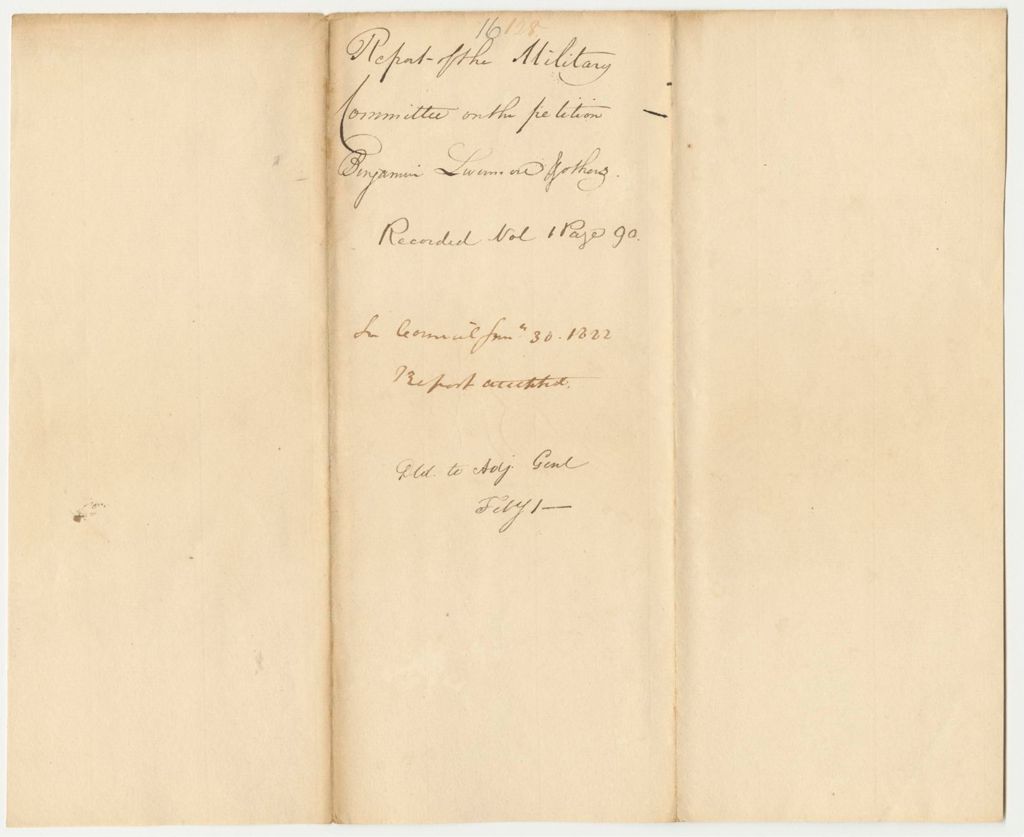 16 128
Report of the Military
Committee on the petition
Benjamin Livermore & others.
Recorded Vol 1 Page 90.
In Council Jany 30. 1822
Report accepted.
Dld. to Adj. Genl
Feby 1 —